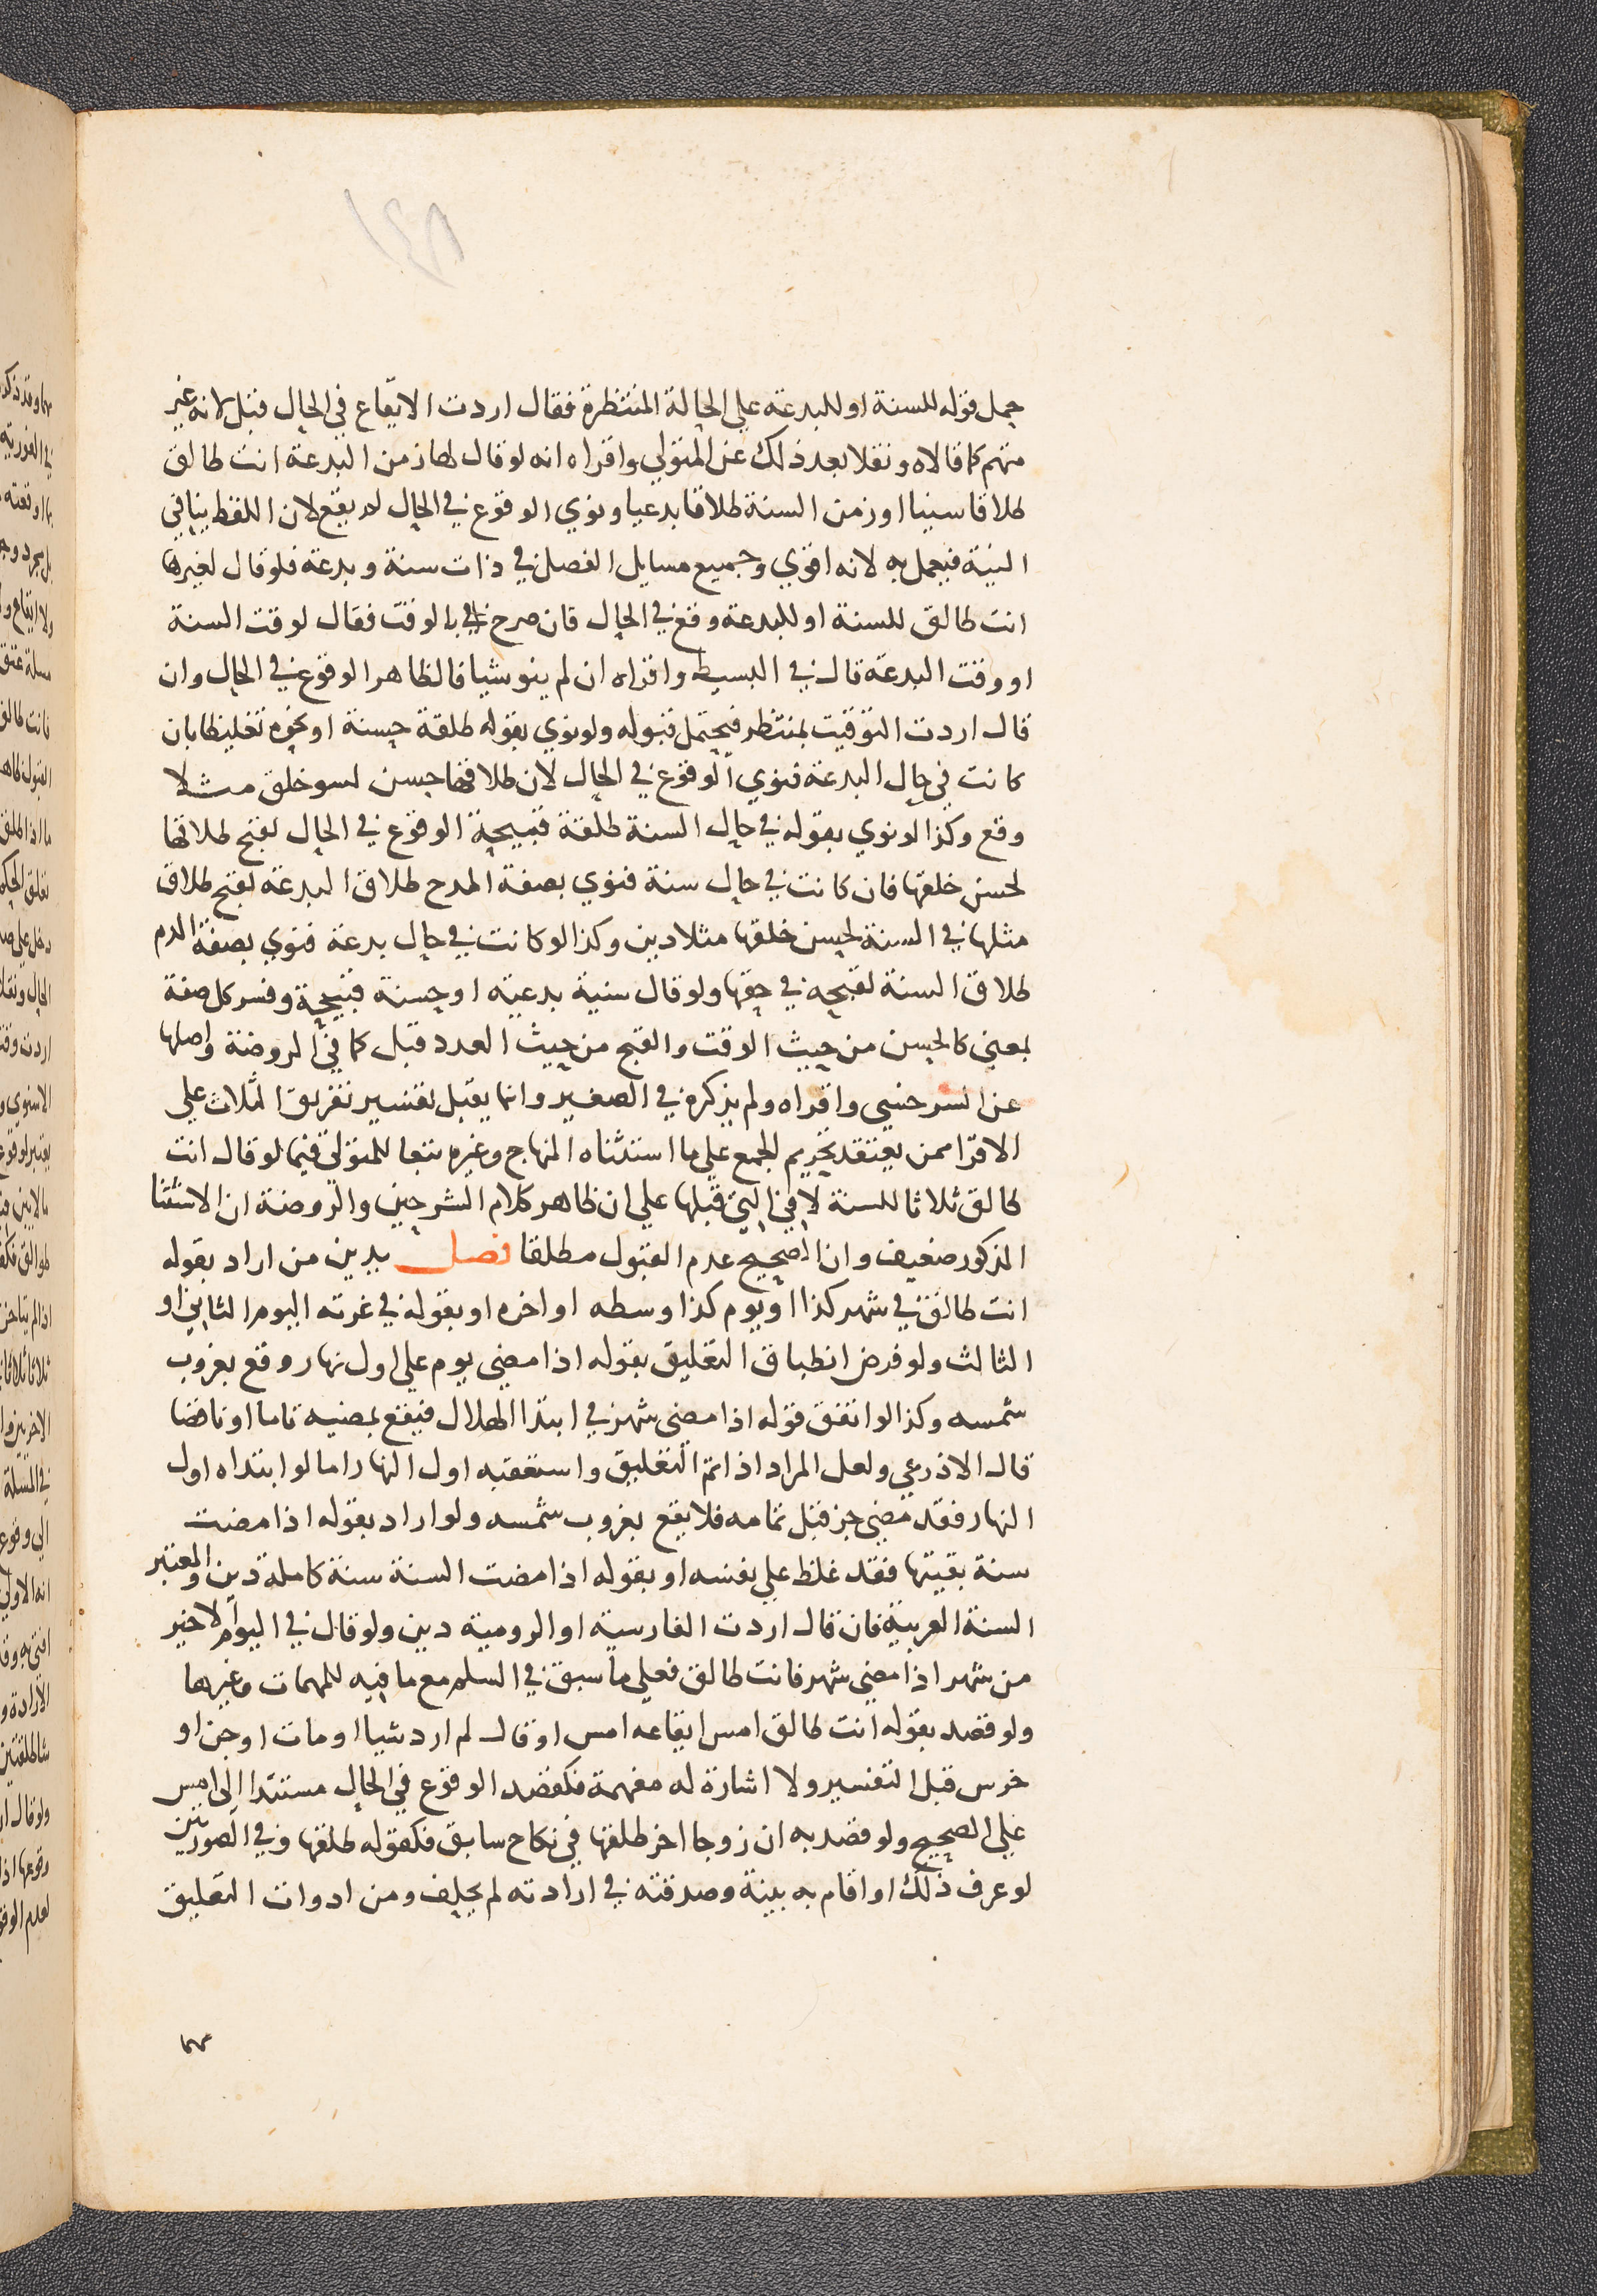 ١٤٨
حمل قوله للسنة او للبدعة علي الحالة المنتظرة فقال اردت الايقاع في الحال قبل لانه غير
متهم كما قالاه ونقلا بعد ذلك عن المتولي واقراه انه لو قال لها زمن البدعة انت طالق
طلاقا سنيا او زمن السنة طلاقا بدعيا ونوي الوقوع في الحال لم يقع لان اللفظ ينافي
النية فيعمل به لانه اقوي وجميع مسايل الفصل في ذات سنة وبدعة فلو قال لغيرها
انت طالق للسنة او للبدعة وقع في الحال فان صرح بالوقت فقال لوقت السنة
او وقت البدعة قال في البسيط واقراه ان لم ينو شيا فالظاهر الوقوع في الحال وان
قال اردت التوقيت بمنتظر فيحتمل قبوله ولو نوي بقوله طلقة حسنة او نحوه تغليظا بان
كانت في حال البدعة فنوي الوقوع في الحال لان طلاقها حسن لسو خلق مثلا
وقع وكذا لو نوي بقوله في حال السنة طلقة قبيحة الوقوع في الحال لقبح طلاقها
لحسن خلقها فان كانت في حال سنة فنوي بصفة المدح طلاق البدعة لقبح طلاق
مثلها في السنة لحسن خلقها مثلا دين وكذا لو كانت في حال بدعة فنوي بصفة الذم
طلاق السنة لقبحه في حقها ولو قال سنية بدعية او حسنة قبيحة وفسر كل صفة
بمعني كالحسن من حيث الوقت والقبح من حيث العدد قبل كما في الروضة واصلها
عن السرخسي واقراه ولم يذكره في الصغير وانما يقبل تفسير تفريق الثلاث علي
الاقرا ممن يعتقد تحريم الجمع علي ما استثناه المنهاج وغيره تبعا للمتولي فيما لو قال انت
طالق ثلاثا للسنة لا في التي قبلها علي ان ظاهر كلام الشرحين والروضة ان الاستثنا
المذكور ضعيف وان الصحيح عدم القبول مطلقا فصل يدين من اراد بقوله
انت طالق في شهر كذا او يوم كذا وسطه او اخره او بقوله في غرته اليوم الثاني او
الثالث ولو فرض انطباق التعليق بقوله اذا مضي يوم علي اول نهار وقع بغروب
شمسه وكذا لو اتفق قوله اذا مضى شهر في ابتدا الهلال فيقع بمضيه تاما او ناقصا
قال الاذرعي ولعل المراد اذا تم التعليق واستعقبه اول النهار اما لو ابتداه اول
النهار فقد مضي جز قبل تمامه فلا يقع بغروب شمسه ولو اراد بقوله اذا مضت
سنة بقيتها فقد غلظ علي نفسه او بقوله اذا مضت السنة سنة كاملة دين والمعتبر
السنة العربية فان قال اردت الفارسية او الرومية دين ولو قال في اليوم الاخير
من شهر اذا مضي شهر فانت طالق فعلي ما سبق في السلم مع ما فيه للمهمات وغيرها
ولو قصد بقوله انت طالق امس ايقاعه امس او قال لم ارد شيا او مات او جن او
خرس قبل التفسير ولا اشارة له مفهمة فكقصد الوقوع في الحال مستندا الى امس
علي الصحيح ولو قصد به ان زوجا اخر طلقها في نكاح سابق فكقوله طلقها وفي الصورتين
لو عرف ذلك او اقام به بينة وصدقته في ارادته لم يحلف ومن ادوات التعليق